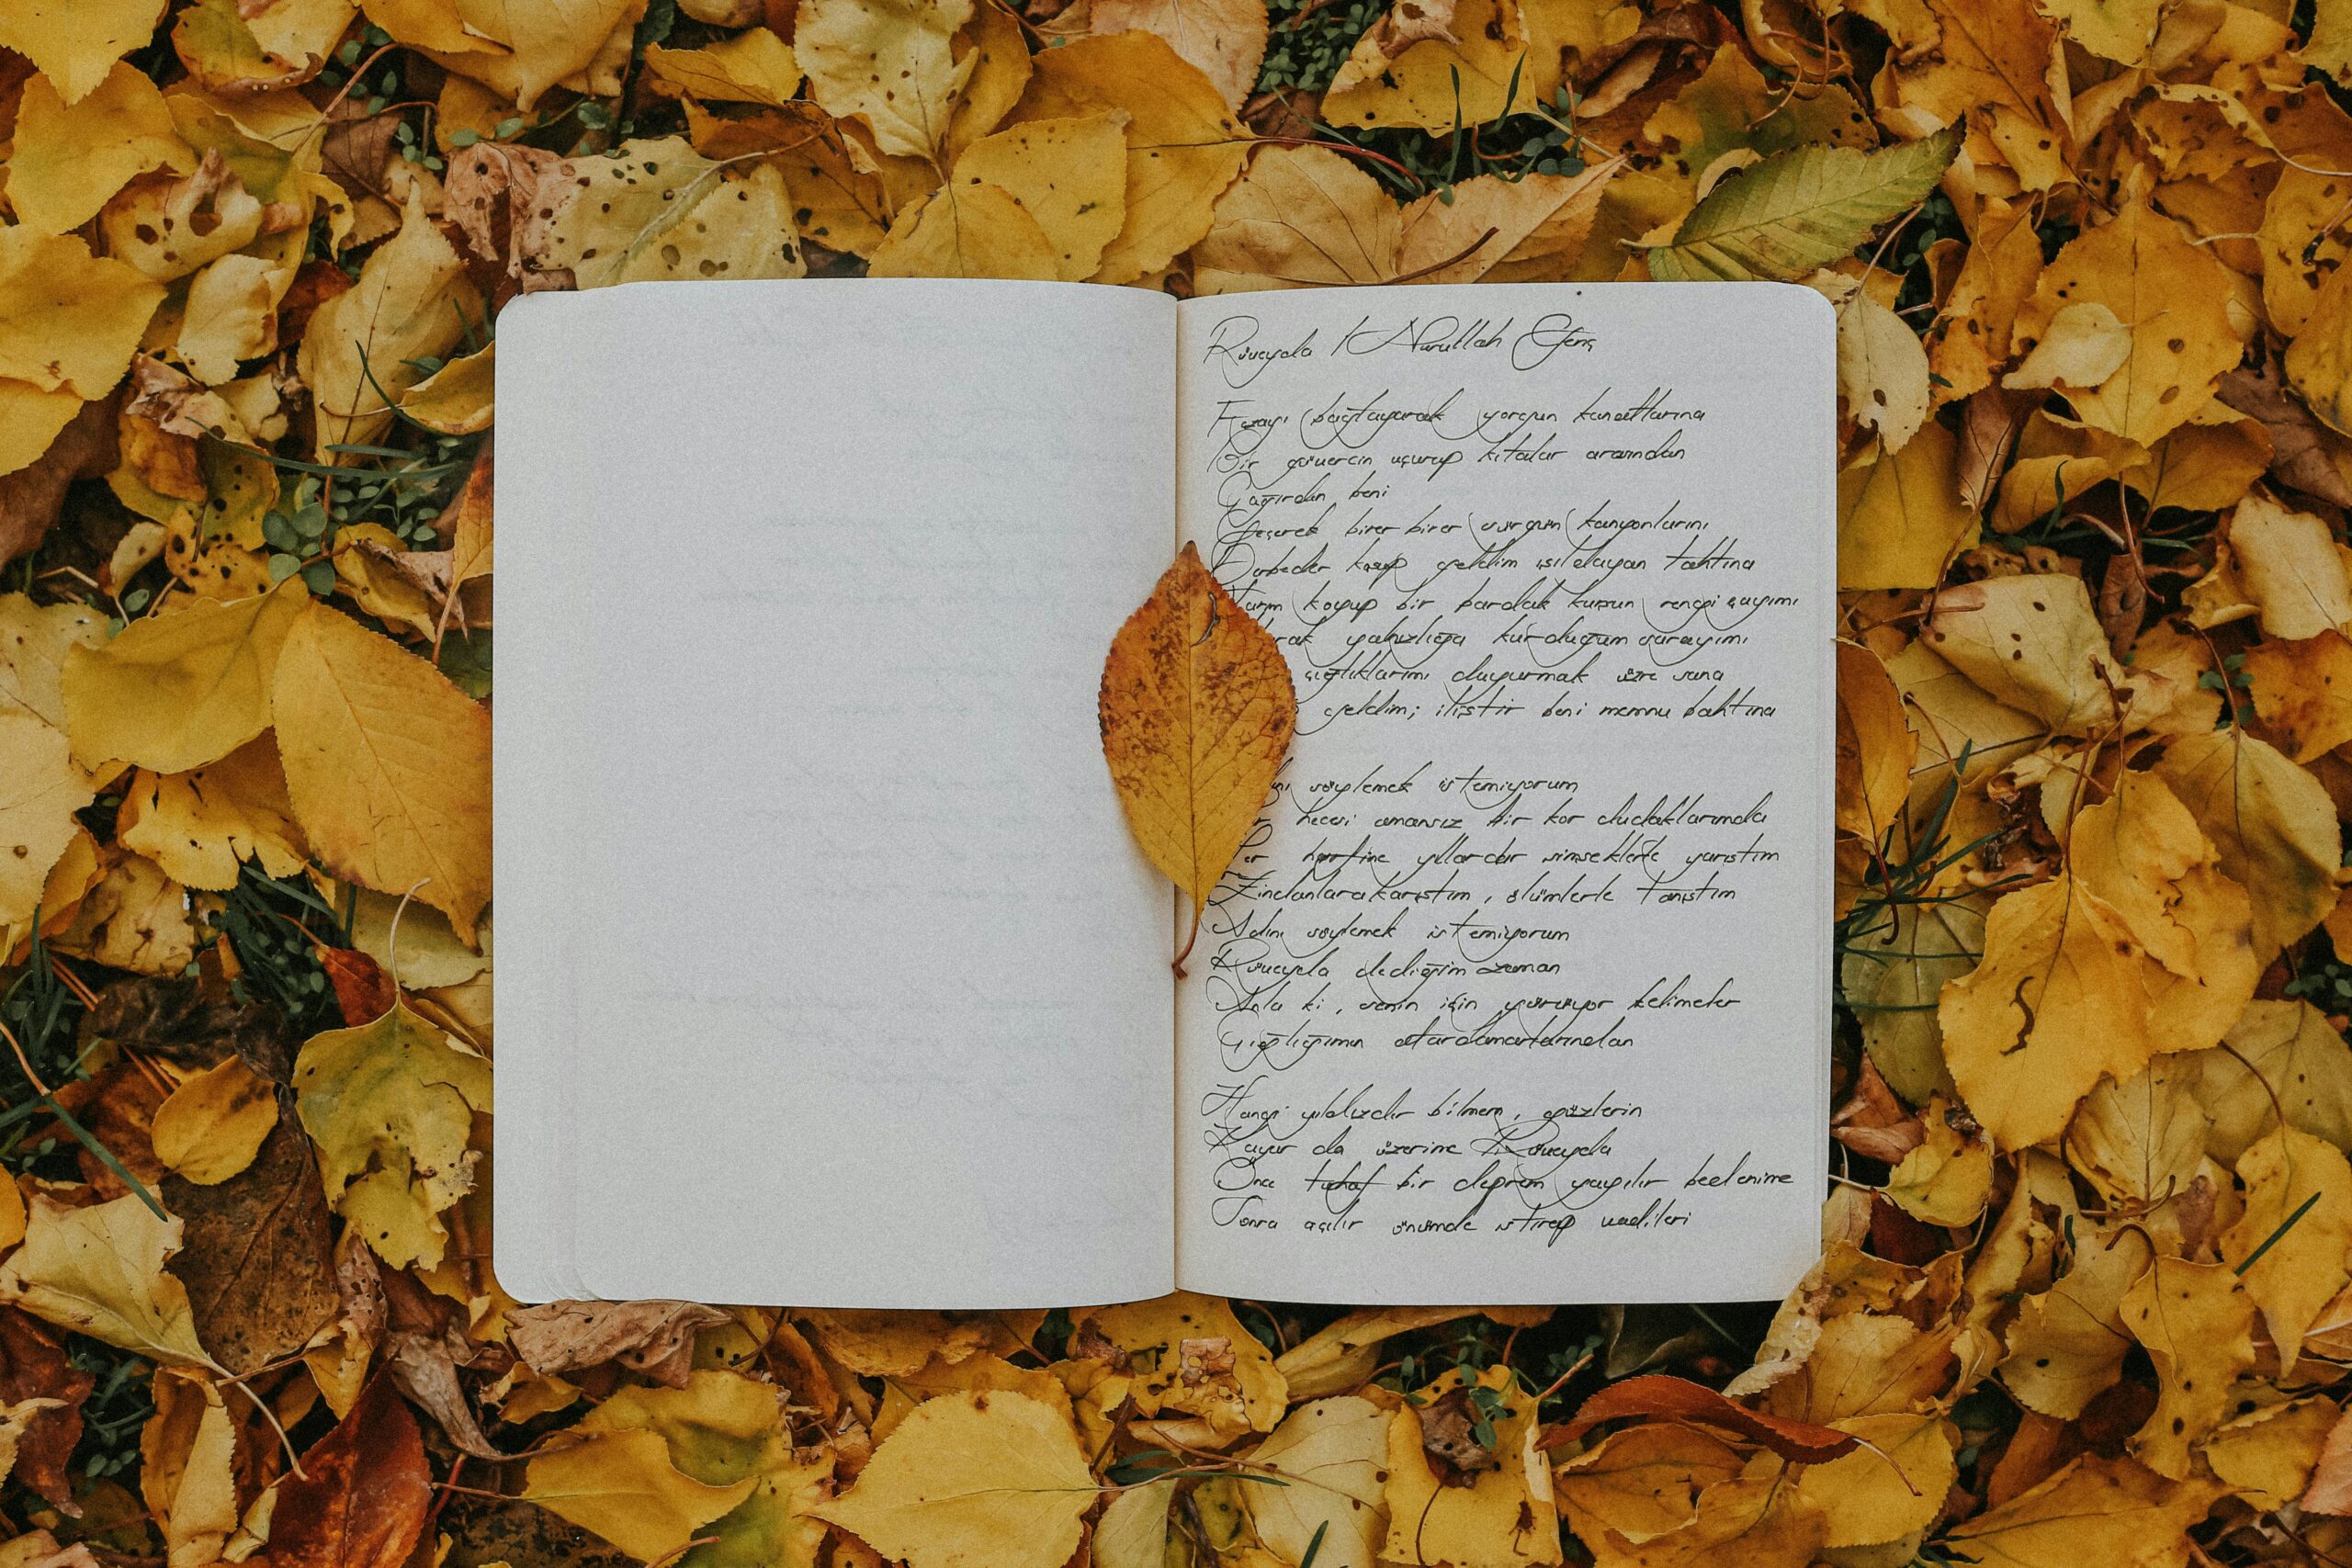 Rüveyda / Nurullah Genç
Fezayı bağlayarak yorgun kanatlarına
Bir güvercin uçurup kıtalar arasından
Çağırdın beni
Geçerek birer birer sürgün kanyonlarını
Derbeder koşup geldim ışıldayan tahtına
Yarım koyup bir bardak kurşun rengi çayımı
rak yalnızlığa kurduğum sarayımı
çığlıklarımı duyurmak üzre sana
geldim; iliştir beni memnu bahtına
söylemek istemiyorum
hecesi amansız bir kor dudaklarımda
Her harfine yıllardır şimşeklerle yarıştım
Zindanlara karıştım, ölümlerle tanıştım
Adını söylemek istemiyorum
Rüveyda dediğim zaman
Anla ki, senin için yürüyor kelimeler
Çığlığımın atardamarlarından
Hangi yıldızdır bilmem, gözlerin
Kayar da üzerime Rüveyda
Önce tuhaf bir deprem yayılır bedenime
Sonra açılır önümde ıstırap vadileri